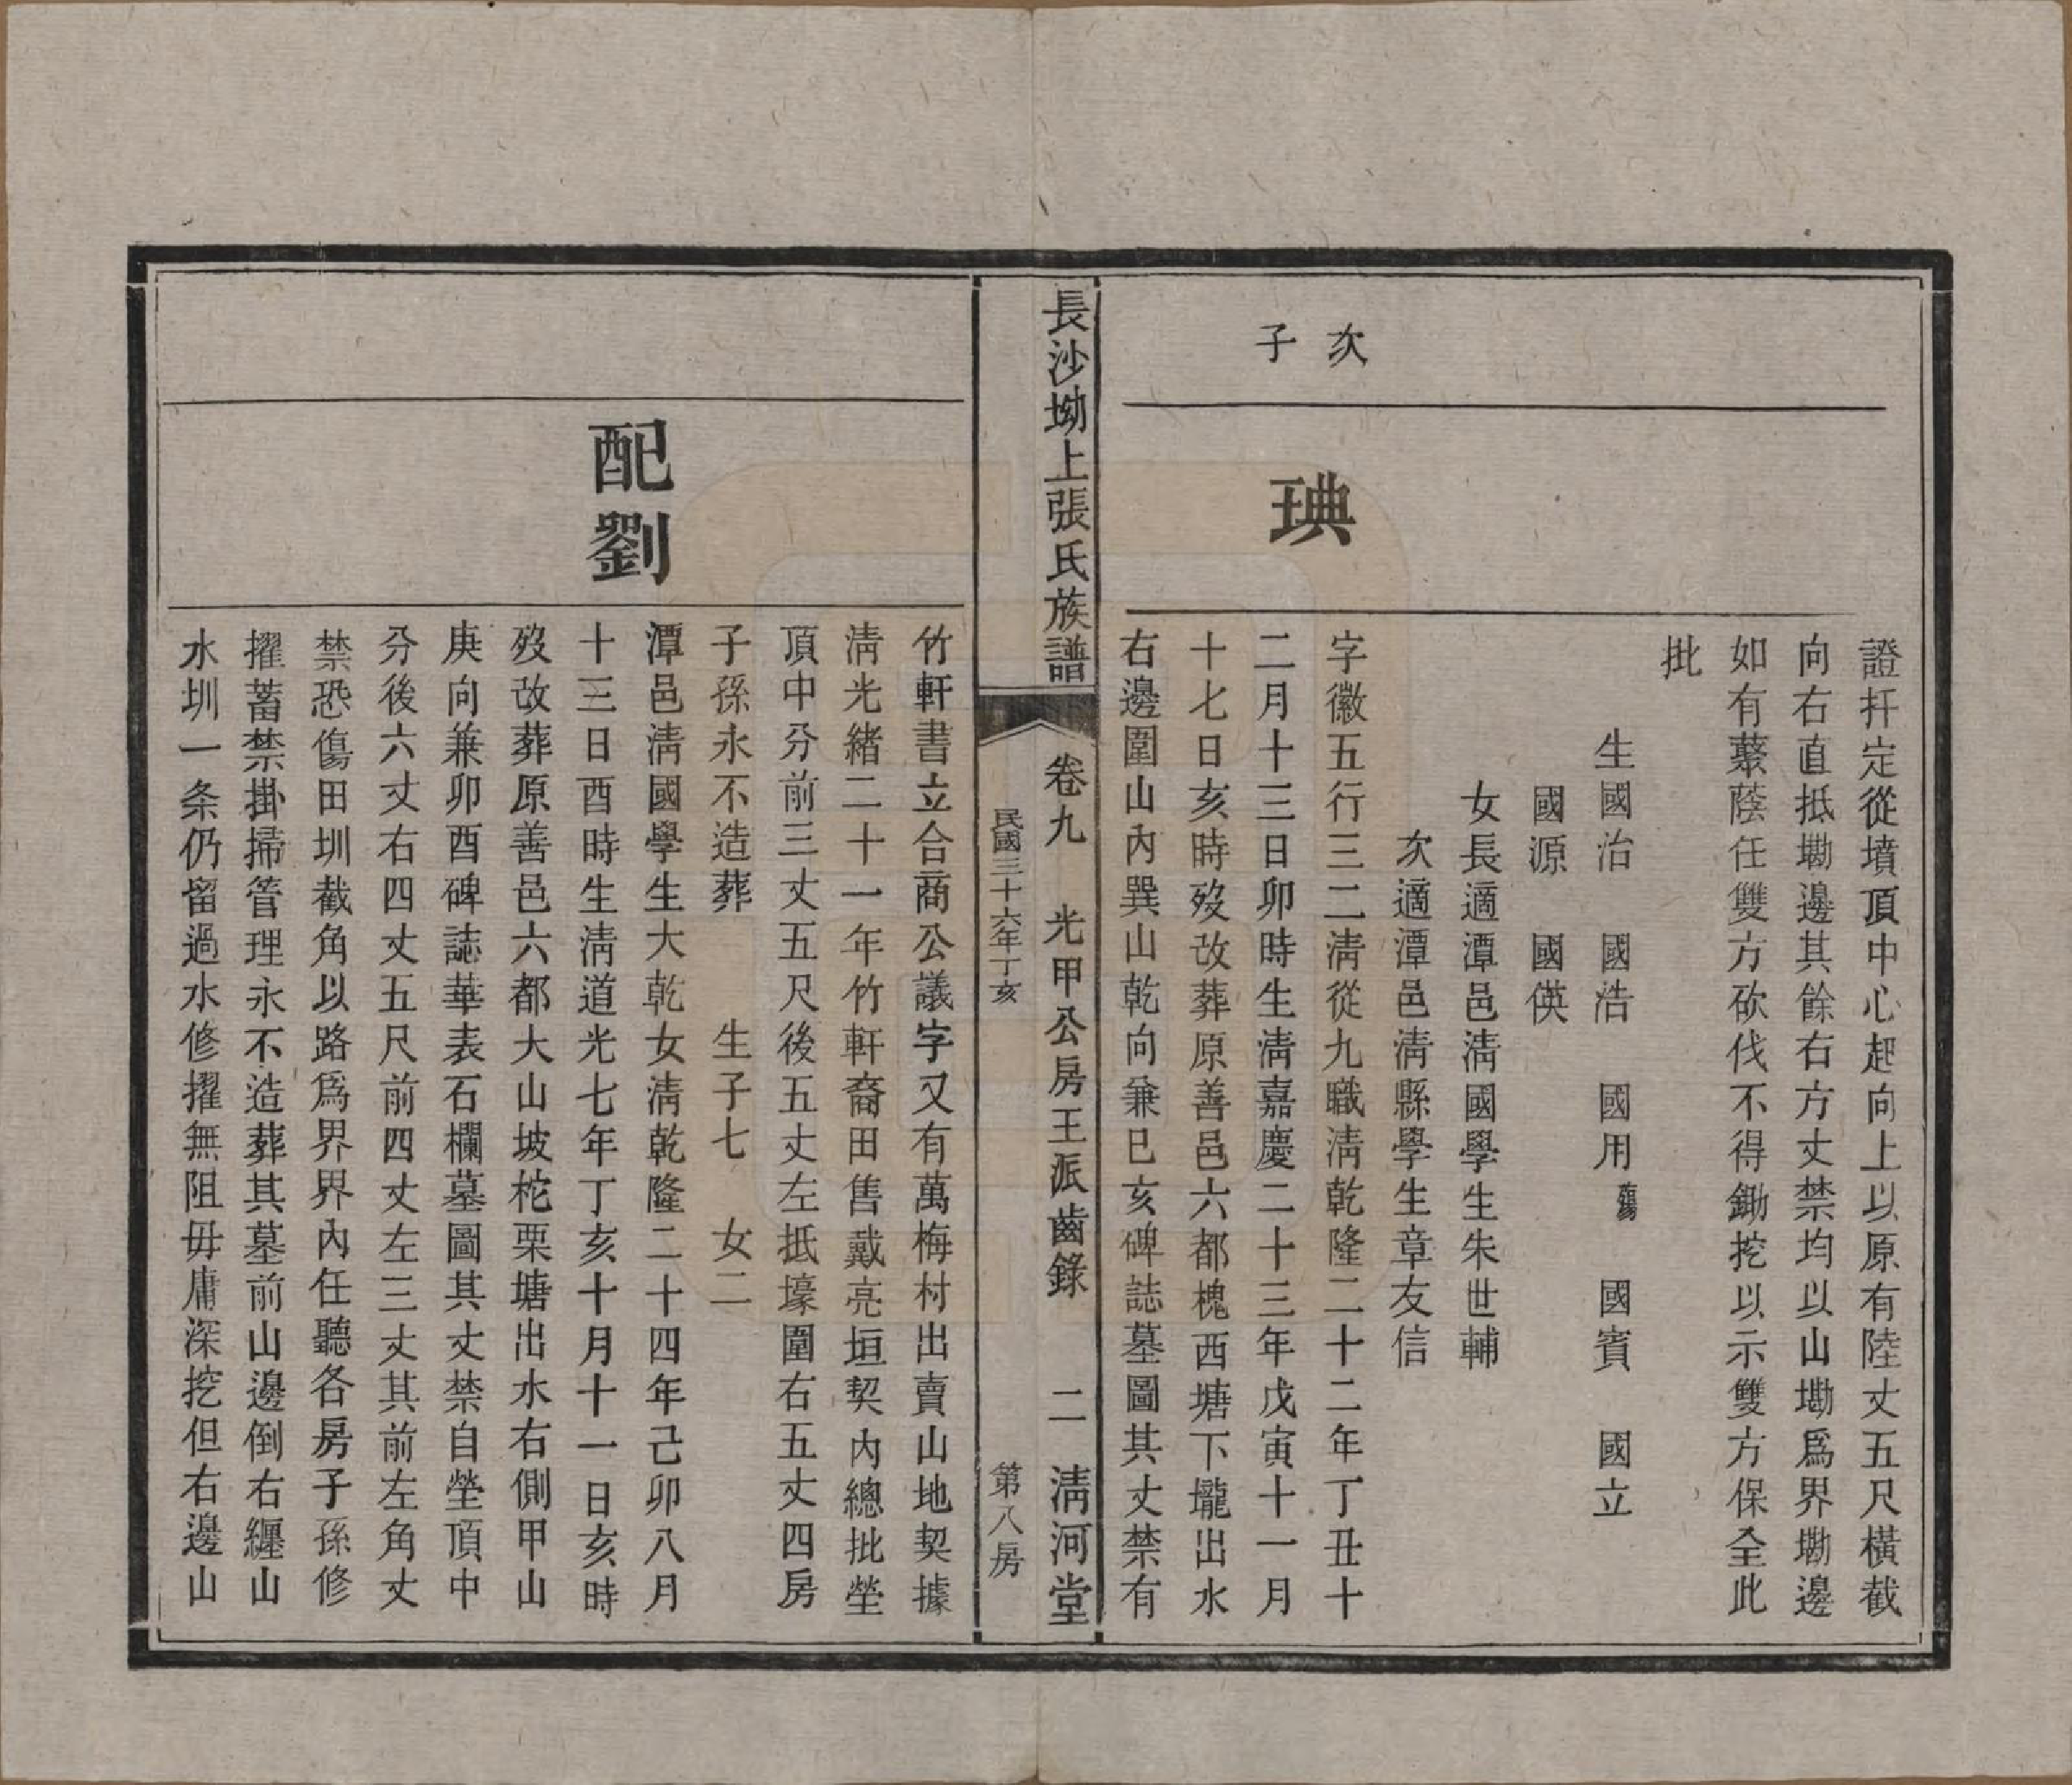 證扦定從墳頂中心起向上以原有陸丈五尺橫截
向右直抵墈邊其餘右方丈禁均以山墈爲界墈邊
如有蘂蔭任雙方砍伐不得鋤挖以示雙方保全此
批
生國治 國浩 國用 國賓 國立
國源 國偀
女長適潭邑淸國學生朱世輔
次適潭邑淸縣學生章友信
次子
琠
字徽五行三二淸從九職淸乾隆二十二年丁丑十
二月十三日卯時生淸嘉慶二十三年戊寅十一月
十七日亥時歿改葬原善邑六都槐西塘下壠出水
右邊圍山內巽山乾向兼巳亥碑誌墓圖其丈禁有
長沙坳上張氏族譜
卷九 光甲公房王派齒錄 二 淸河堂
民國三十六年丁亥 第八房
竹軒書立合商公議字又有萬梅村出賣山地契據
淸光緒二十一年竹軒裔田售戴亮垣契內總批塋
頂中分前三丈五尺後五丈左抵壕圍右五丈四房
子孫永不造葬 生子七 女二
配劉
潭邑淸國學生大乾女淸乾隆二十四年己卯八月
十三日酉時生淸道光七年丁亥十月十一日亥時
歿改葬原善邑六都大山坡柁栗塘出水右側甲山
庚向兼卯酉碑誌華表石欄墓圖其丈禁自塋頂中
分後六丈右四丈五尺前四丈左三丈其前左角丈
禁恐傷田圳截角以路爲界界內任聽各房子孫修
擢蓄禁掛掃管理永不造葬其墓前山邊倒右纒山
水圳一条仍留過水修擢無阻毋庸深挖但右邊山